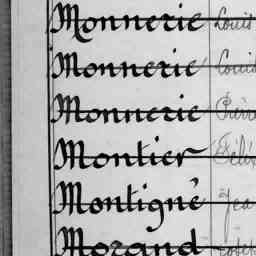 Monnerie Louis
Monnerie Louis
Monnerie Pierre
Montier Félix
Montigné Jea
Morand